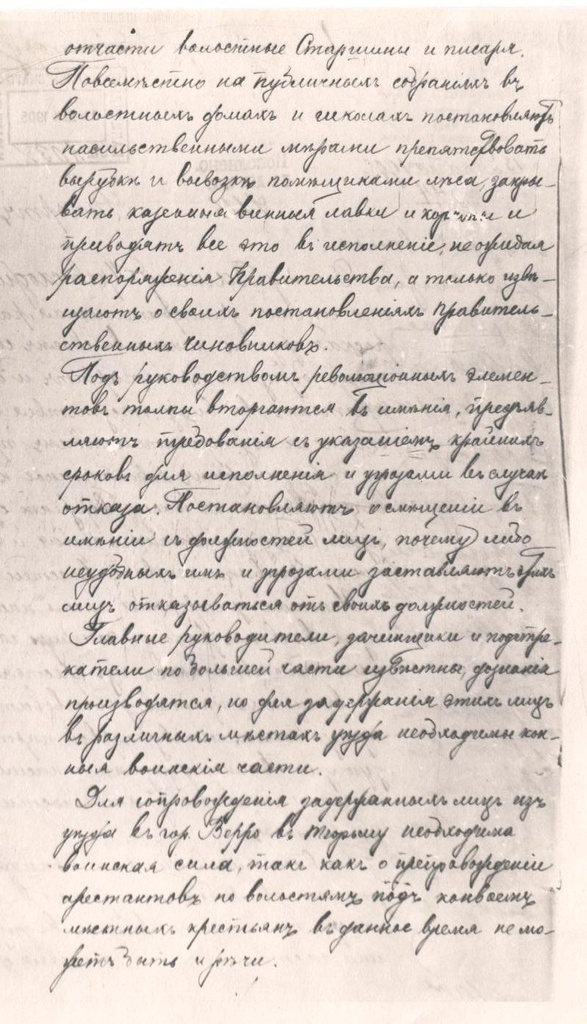 отчасти волостные Старшины и писаря.
Повсемѣстно на публичныхъ собранiяхъ въ
волостныхъ домахъ и школахъ постановляютъ
насильственными мѣрами препятствовать
вырубкѣ и вывозкѣ помѣщиками лѣса, закры-
вать казенныя винныя лавки и корчмы и
приводятъ все это въ исполненiе, не ожидая
распоряженiя Правительства, а только извѣ-
щаютъ о своихъ постановленiяхъ правитель-
ственныхъ чиновниковъ.
Подъ руководствомъ революцiонныхъ элемен-
товъ толпы вторгаются въ имѣнiя, предъяв-
ляютъ требованiя съ указанiемъ крайнихъ
сроковъ для исполненiя и угрозами въ случаѣ
отказа. Постановляютъ о смѣщенiи въ
имѣнiи съ должностей лицъ, почему либо
неудобныхъ имъ и угрозами заставляютъ этихъ
лицъ отказываться отъ своихъ должностей.
Главные руководители, зачинщики и подстре-
катели по большей части извѣстны, дознанiя
производятся, но для задержанiя этихъ лицъ
въ различныхъ мѣстахъ уѣзда необходимы кон-
ныя воинскiя части.
Для сопровожденiя задержанныхъ лицъ изъ
уѣзда въ гор. Верро въ тюрьму необходима
воинская сила, такъ какъ о препровожденiи
арестантовъ по волостямъ подъ конвоемъ
мѣстныхъ крестьянъ въ данное время не мо-
жетъ быть и рѣчи.